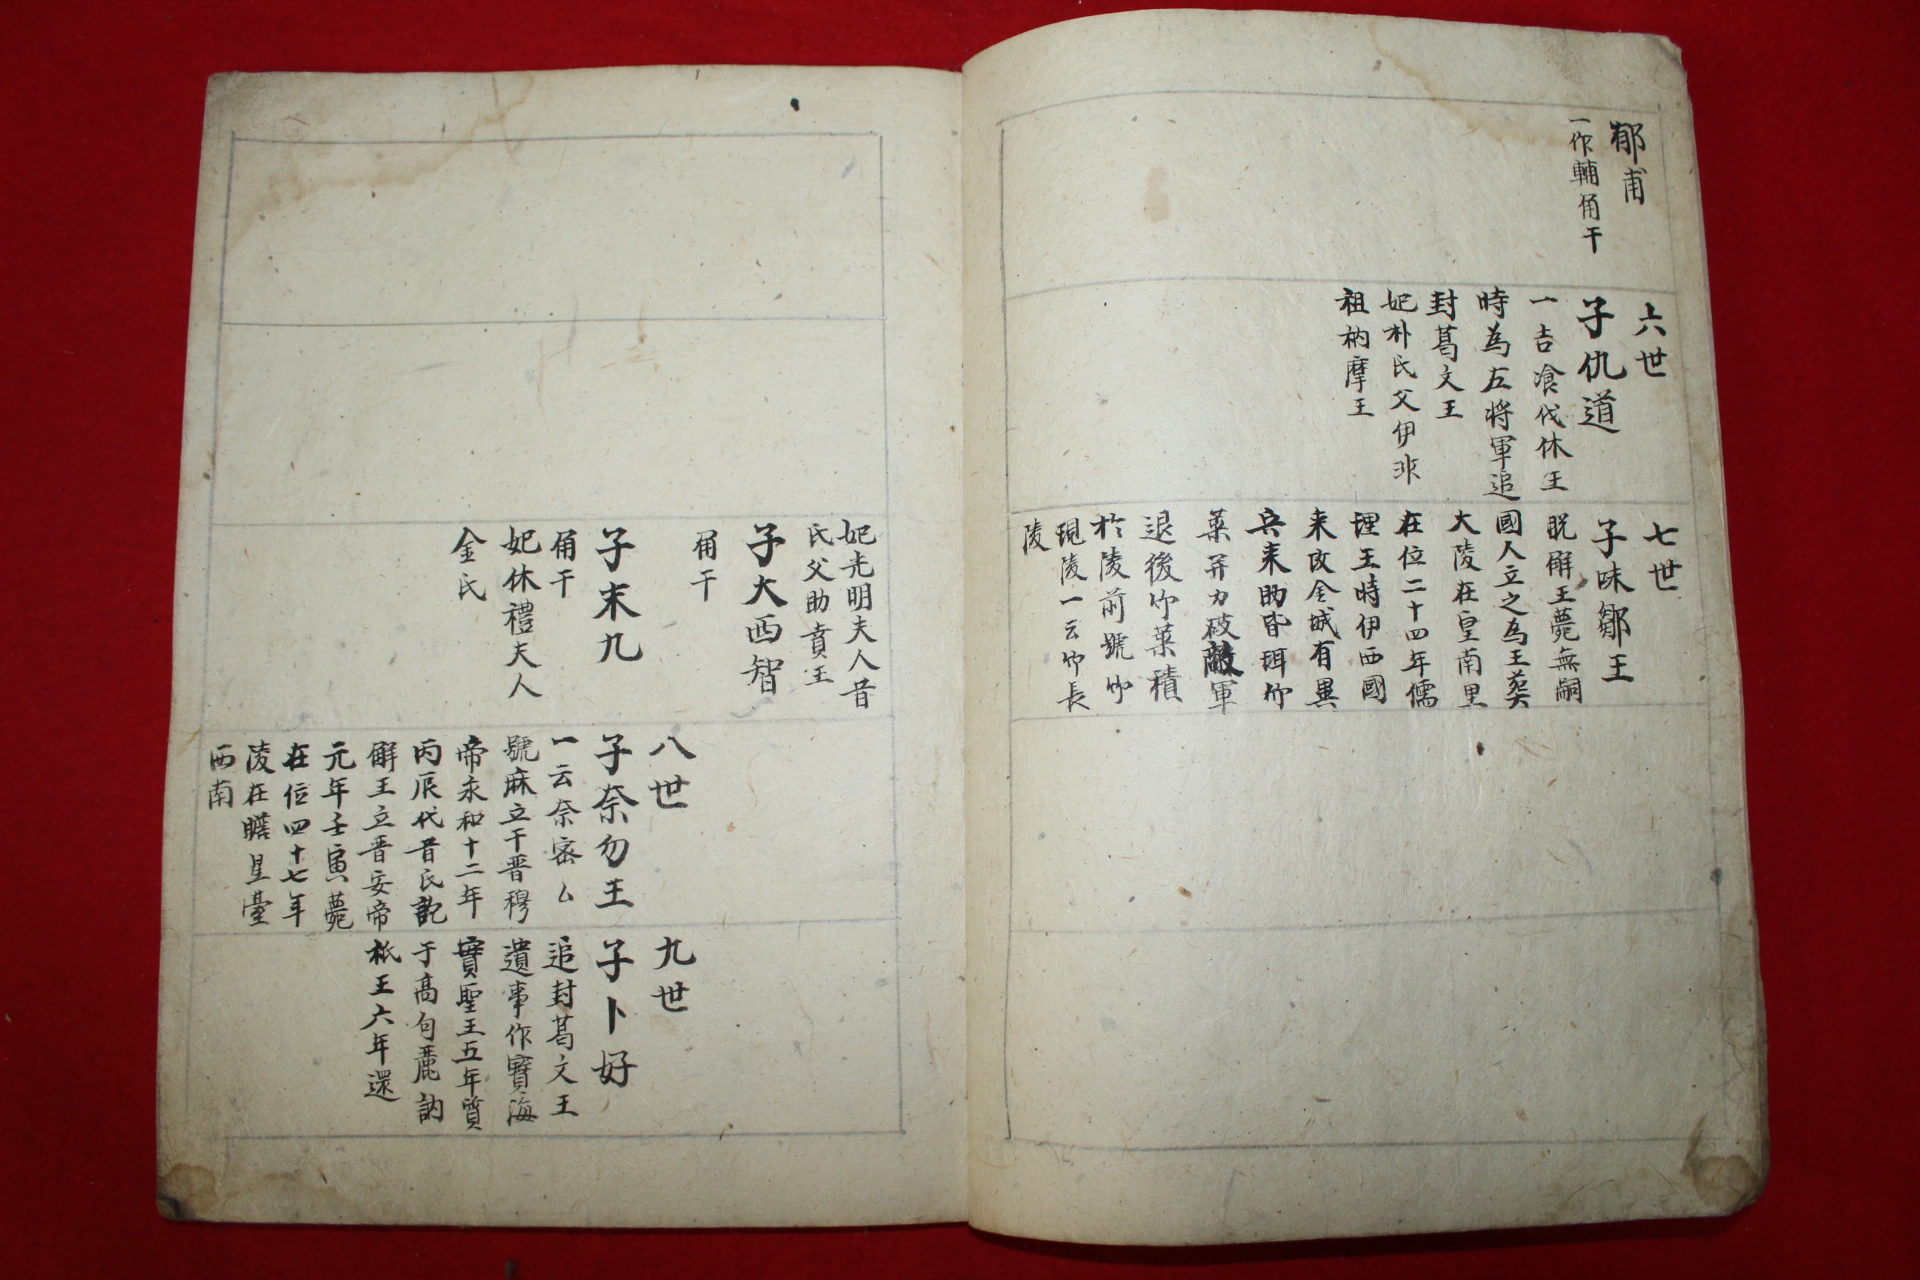 郁甫
一作輔角干
六世
子仇道
一吉飡伐休王
時為左將軍追
封葛文王
妃朴氏父伊非
祖枘摩王
七世
子味鄒王
脫解王薨無嗣
國人立之為王葬
大陵在皇南里
在位二十四年儒
理王時伊西國
来攻金城有異
兵来助皆珥竹
葉并力破敵軍
退後竹葉積
於陵前號竹
現陵一云竹長
陵
妃光明夫人昔
氏父助賁王
子大西智
角干
子末九
角干
妃休禮夫人
金氏
八世
子奈勿王
一云奈密厶
號麻立干晋穆
帝永和十二年
丙辰代昔氏訖
解王立晋安帝
元年壬寅薨
在位四十七年
陵在瞻星臺
西南
九世
子卜好
追封葛文王
遺事作寶海
實聖王五年質
于高句麗訥
祇王六年還